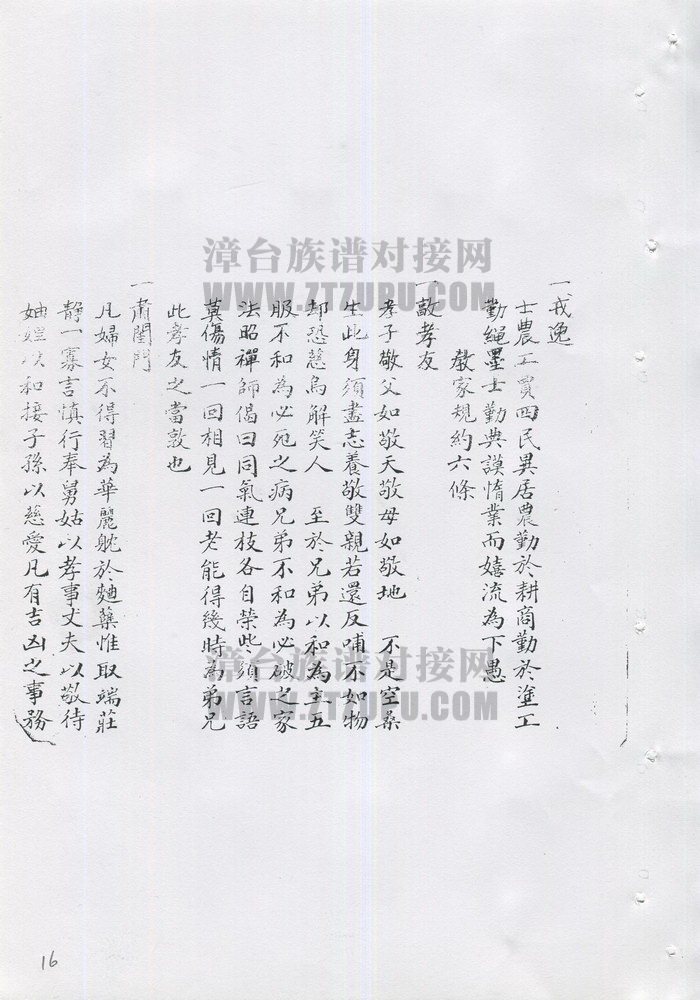 一戒逸
士農工賈四民異居農勤於耕商勤於塗工
勤繩墨士勤典謨惰業而嬉流為下愚
教家規約六條
一敦孝友
孝子敬父如敬天敬母如敬地 不是空桑
生此身須盡志養敬雙親若還反哺不如物
却恐慈烏解笑人 至於兄弟以和為主五
服不和為必死之病兄弟不和為必破之家
法昭禪師偈曰同氣連枝各自榮些須言語
莫傷情一回相見一回老能得幾時為弟兄
此孝友之當敦也
一肅閨門
凡婦女不得習為華麗躭於麯糵惟取端莊
靜一寡言慎行奉舅姑以孝事丈夫以敬待
妯娌以和接子孫以慈愛凡有吉凶之事務
漳台族谱对接网
WWW.ZTZUPU.COM
漳台族谱对接网
WWW.ZTZUPU.COM
16